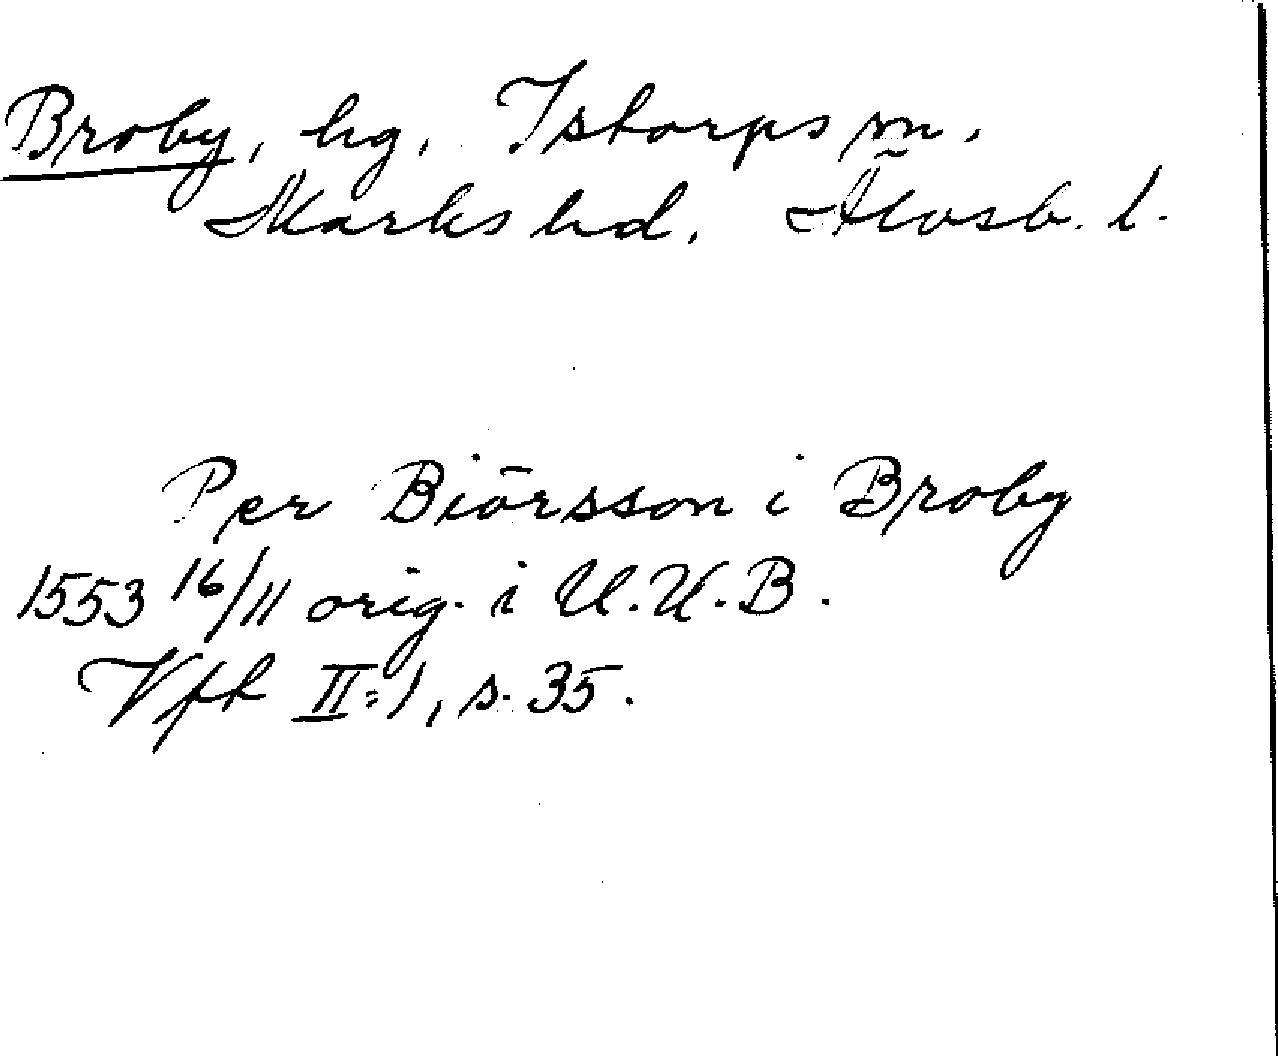 Broby, hg. Istorps sn.
Marks hd. Älvsb. l.
Per Biörsson i Broby
1553 16/11 orig. i U.U.B.
Vfh II:1, s. 35.